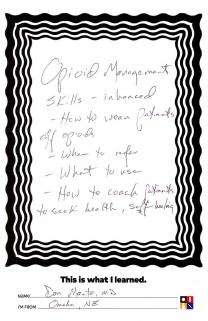 Opioid Management
skills - inhanced
- How to wean patients
off opioids
- When to refer
- What to use
- How to coach patients
to seek health, self-healing
This is what I learned.
NAME: Don MD
I'M FROM: Omaha, NE